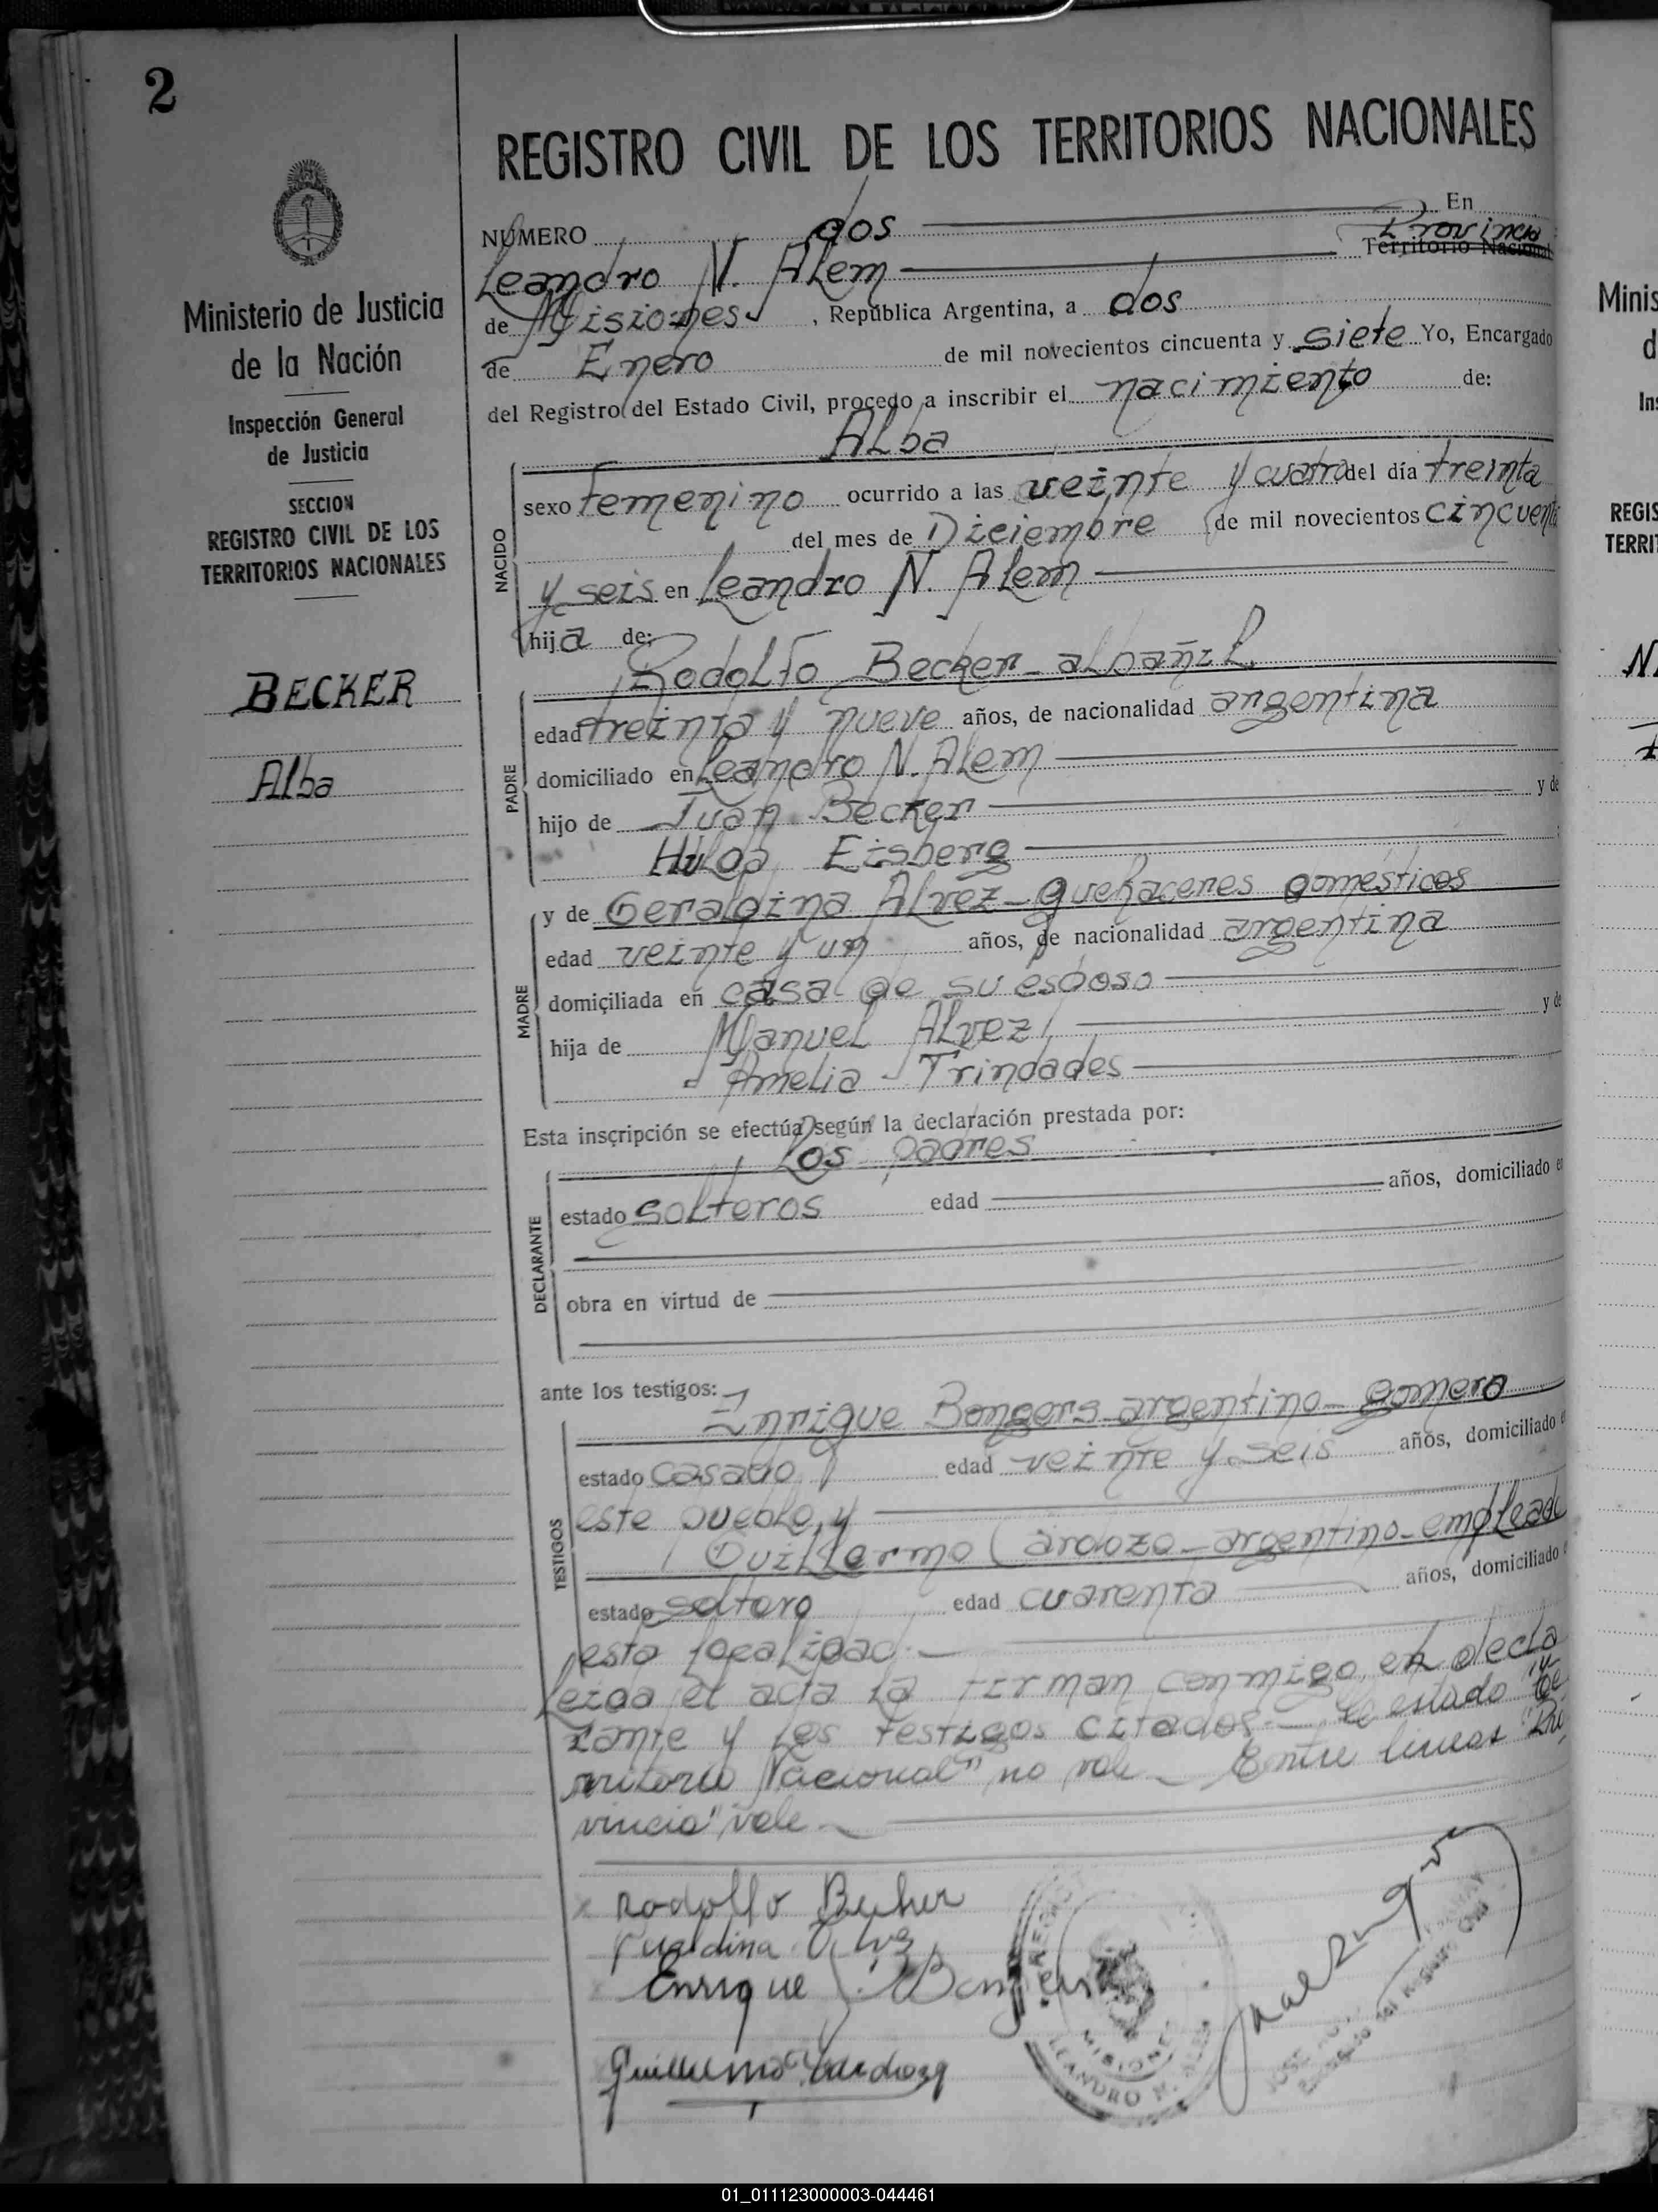 2
REGISTRO CIVIL DE LOS TERRITORIOS NACIONALES
Ministerio de Justicia
de la Nación
Inspección General
de Justicia
SECCION
REGISTRO CIVIL DE LOS
TERRITORIOS NACIONALES
BECKER
Alba
NUMERO dos En
Provincia
Leandro N. Alem Territorio Nacional
de Misiones, República Argentina, a dos
de Enero de mil novecientos cincuenta y siete Yo, Encargado
del Registro del Estado Civil, procedo a inscribir el nacimiento de:
Alba
NACIDO
sexo femenino ocurrido a las veinte y cuatro del día treinta
del mes de Diciembre de mil novecientos cincuenta
y seis en Leandro N. Alem
hija de:
Rodolfo Becker - albañil.
PADRE
edad treinta y nueve años, de nacionalidad argentina
domiciliado en Leandro N. Alem
hijo de Juan Becker y de
Hilda Eisberg
MADRE
y de Geraldina Alvez - quehaceres domésticos
edad veinte y un años, de nacionalidad argentina
domiciliada en casa de su esposo
hija de Manuel Alvez y de
Amelia Trindades
Esta inscripción se efectúa según la declaración prestada por:
Los padres
DECLARANTE
estado solteros edad años, domiciliado en
obra en virtud de
ante los testigos:
Enrique Bongers - argentino - gomero
TESTIGOS
estado casado edad veinte y seis años, domiciliado
este pueblo, y
Guillermo Cardozo - argentino - empleado
estado soltero edad cuarenta años, domiciliado
esta localidad.
Leida el acta la firman conmigo, el decla
rante y los testigos citados.- Lo testado "Te
rritorio Nacional" no vale - Entre lineas "Pro
vincia" vale.-
Rodolfo Becker
Enrique Bongers
Guillermo Cardozo
MISIONES
LEANDRO N. ALEM
Encargado del Registro Civil
Minis
d
In
REGIS
TERRI
01_011123000003-044461